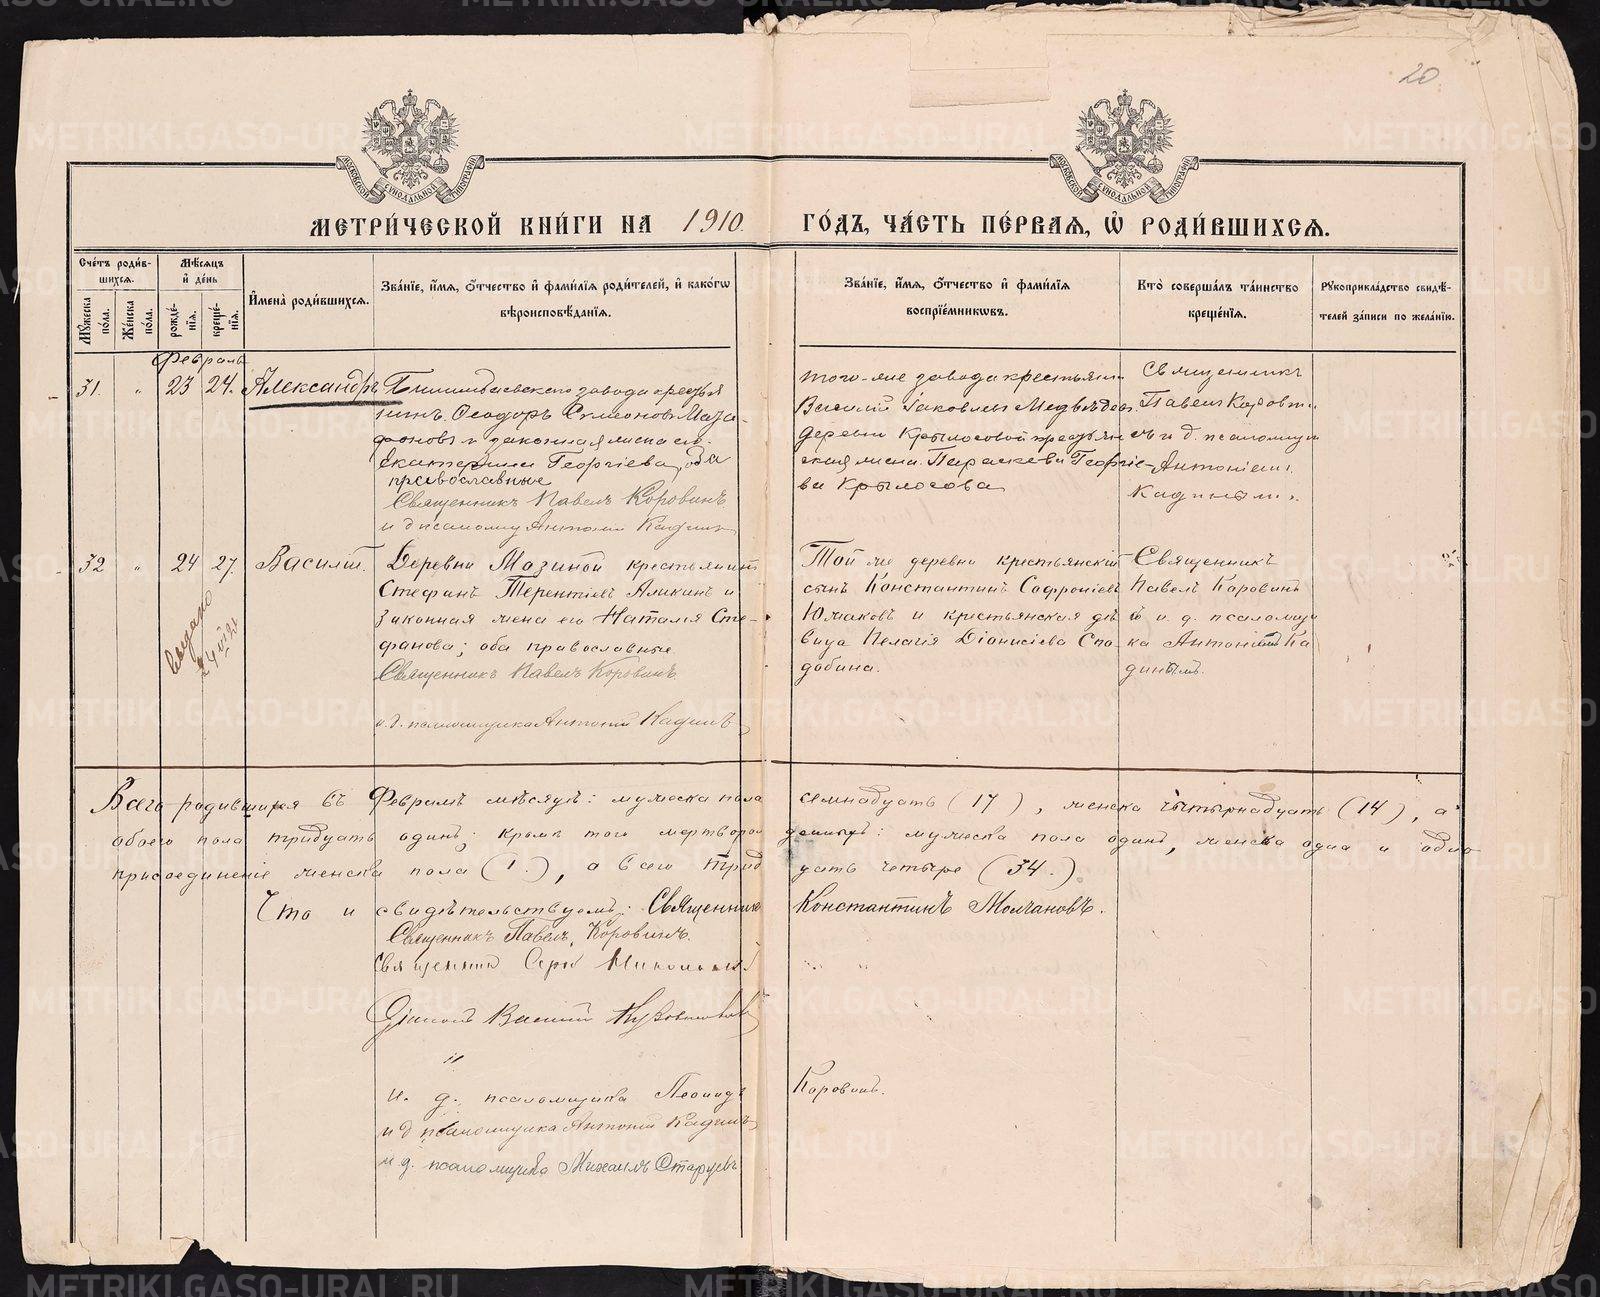 20
МЕТРИ́ЧЕСКОЙ КНИ́ГИ НА 1910. ГО́ДЪ, ЧА́СТЬ ПЕ́РВАЯ, Ѿ РОДИ́ВШИХСЯ.
Сче́тъ роди́в-
шихся.
Мѣ́сяцъ
и҆ де́нь
Мꙋ́жеска по́ла.
Же́нска по́ла.
рожде́-
нїя.
креще́-
нїя.
И҆мена̀ роди́вшихся.
Зва́нїе, и҆́мя, ѻ҆́тчество и҆ фами́лїя роди́телей, и҆ како́гѡ
вѣроисповѣ́данїя.
Зва́нїе, и҆́мя, ѻ҆́тчество и҆ фами́лїя
воспрїе́мникѡвъ.
Кто̀ соверша́лъ та́инство
креще́нїя.
Рꙋкоприкла́дство свидѣ́-
телей за́писи по жела́нїю.
Февраль
31. " 23 24. Александръ
Билимбаевскаго завода кресья
нинъ Ѳеодоръ Симеоновъ Маза-
фоновъ и законная жена его
Екатерина Георгіева, оба
православные
Священникъ Павелъ Коровинъ
и д псаломщ Антоній Кадинъ
того-же завода крестьянин
Василій Іаковлевъ Медвѣдевъ
деревни Крылосовой крестьян
ская жена Параскева Георгіе-
ва Крылосова
Священникъ
Павелъ Коровин
съ и д. псаломщи
Антоніем
Кадинымъ.
32 " 24 27. Василій.
Выдано
Деревни Мазиной крестьянинъ
Стефанъ Терентіевъ Аликинъ и
законная жена его Наталія Сте-
фанова; оба православные
Священникъ Павелъ Коровинъ
и.д. псаломщика Антоній Кадинъ
Той же деревни крестьянскій
сынъ Константинъ Софроніевъ
Юмаковъ и крестьянская дѣ
вица Пелагія Діонисіева Спо-
добина.
Священникъ
Павелъ Коровинъ
съ и. д. псаломщи
ка Антоніемъ Ка
динымъ.
Всего родившихся въ Февралѣ мѣсяцѣ: мужеска пола семнадцать (17), женска четырнадцать (14), а
обоего пола тридцать одинъ; кромѣ того мертворож денныхъ: мужеска пола одинъ, женска одна и одно
присоединеніе женска пола (1.), а всего трид цать четыре (34.)
Что и свидѣтельствуемъ: Священникъ Константинъ Молчановъ.
Священникъ Павелъ Коровинъ.
Священникъ
Діаконъ Василій
и
и. д. псаломщика Леонидъ Коровинъ.
и д псаломщика Антоній Кадинъ
и д. псаломщика Михаилъ Старцевъ
METRIKI.GASO-URAL.RU